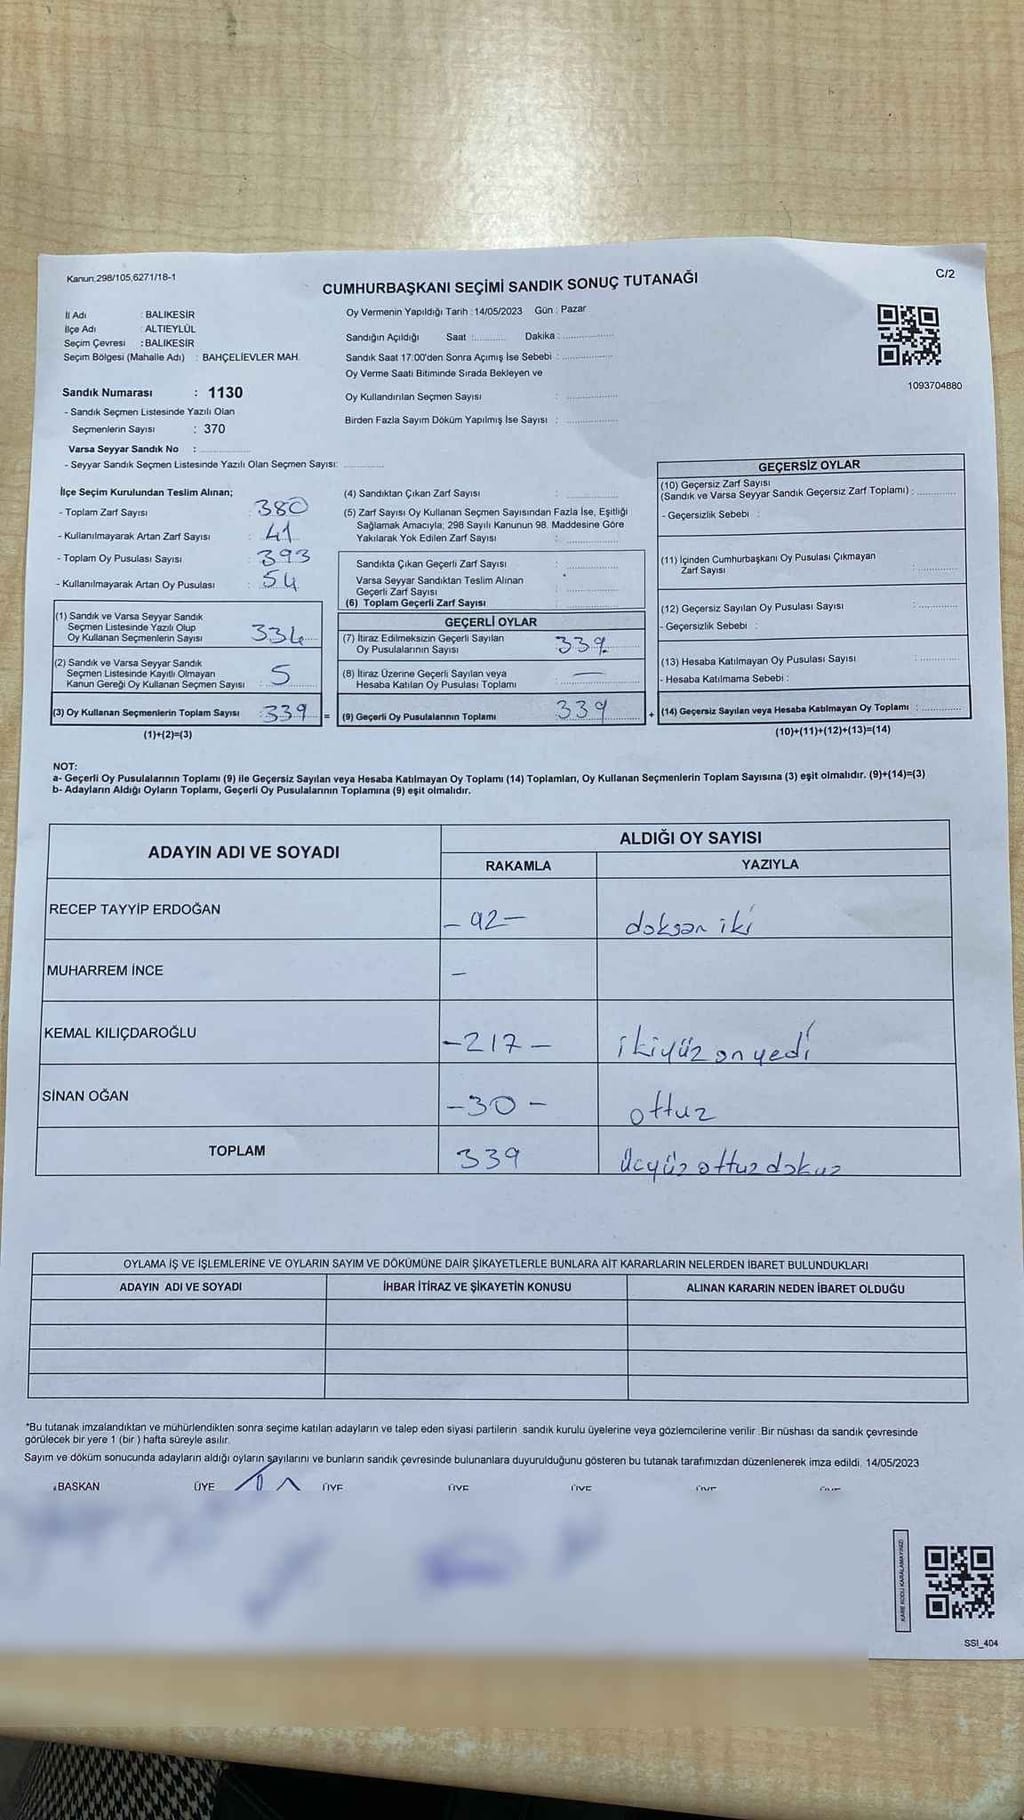 Kanun;298/105,6271/18-1
C/2
CUMHURBAŞKANI SEÇİMİ SANDIK SONUÇ TUTANAĞI
İl Adı : BALIKESİR
İlçe Adı : ALTIEYLÜL
Seçim Çevresi : BALIKESİR
Seçim Bölgesi (Mahalle Adı) : BAHÇELİEVLER MAH.
Oy Vermenin Yapıldığı Tarih : 14/05/2023 Gün : Pazar
Sandığın Açıldığı Saat :.......... Dakika :..............
Sandık Saat 17:00'den Sonra Açımış İse Sebebi : ..............
Oy Verme Saati Bitiminde Sırada Bekleyen ve
Oy Kullandırılan Seçmen Sayısı : ..............
Birden Fazla Sayım Döküm Yapılmış İse Sayısı : ..............
1093704880
Sandık Numarası : 1130
- Sandık Seçmen Listesinde Yazılı Olan
Seçmenlerin Sayısı : 370
Varsa Seyyar Sandık No : ..............
- Seyyar Sandık Seçmen Listesinde Yazılı Olan Seçmen Sayısı: ..........
İlçe Seçim Kurulundan Teslim Alınan;
- Toplam Zarf Sayısı : 380
- Kullanılmayarak Artan Zarf Sayısı : 41
- Toplam Oy Pusulası Sayısı : 393
- Kullanılmayarak Artan Oy Pusulası : 54
(1) Sandık ve Varsa Seyyar Sandık
Seçmen Listesinde Yazılı Olup
Oy Kullanan Seçmenlerin Sayısı 334
(2) Sandık ve Varsa Seyyar Sandık
Seçmen Listesinde Kayıtlı Olmayan
Kanun Gereği Oy Kullanan Seçmen Sayısı 5
(3) Oy Kullanan Seçmenlerin Toplam Sayısı :339 =
(1)+(2)=(3)
(4) Sandıktan Çıkan Zarf Sayısı : ..............
(5) Zarf Sayısı Oy Kullanan Seçmen Sayısından Fazla İse, Eşitliği
Sağlamak Amacıyla; 298 Sayılı Kanunun 98. Maddesine Göre
Yakılarak Yok Edilen Zarf Sayısı : ..............
Sandıkta Çıkan Geçerli Zarf Sayısı : ..............
Varsa Seyyar Sandıktan Teslim Alınan
Geçerli Zarf Sayısı : ..............
(6) Toplam Geçerli Zarf Sayısı : ..............
GEÇERLİ OYLAR
(7) İtiraz Edilmeksizin Geçerli Sayılan
Oy Pusulalarının Sayısı 339
(8) İtiraz Üzerine Geçerli Sayılan veya
Hesaba Katılan Oy Pusulası Toplamı —
(9) Geçerli Oy Pusulalarının Toplamı 339 +
GEÇERSİZ OYLAR
(10) Geçersiz Zarf Sayısı
(Sandık ve Varsa Seyyar Sandık Geçersiz Zarf Toplamı) : ..........
- Geçersizlik Sebebi :
(11) İçinden Cumhurbaşkanı Oy Pusulası Çıkmayan
Zarf Sayısı : ..........
(12) Geçersiz Sayılan Oy Pusulası Sayısı : ..........
- Geçersizlik Sebebi :
(13) Hesaba Katılmayan Oy Pusulası Sayısı : ..........
- Hesaba Katılmama Sebebi :
(14) Geçersiz Sayılan veya Hesaba Katılmayan Oy Toplamı : ..........
(10)+(11)+(12)+(13)=(14)
NOT:
a- Geçerli Oy Pusulalarının Toplamı (9) ile Geçersiz Sayılan veya Hesaba Katılmayan Oy Toplamı (14) Toplamları, Oy Kullanan Seçmenlerin Toplam Sayısına (3) eşit olmalıdır. (9)+(14)=(3)
b- Adayların Aldığı Oyların Toplamı, Geçerli Oy Pusulalarının Toplamına (9) eşit olmalıdır.
ADAYIN ADI VE SOYADI ALDIĞI OY SAYISI
RAKAMLA YAZIYLA
RECEP TAYYİP ERDOĞAN -92- doksan iki
MUHARREM İNCE -
KEMAL KILIÇDAROĞLU -217- ikiyüz on yedi
SİNAN OĞAN -30- ottuz
TOPLAM 339 üçyüz ottuz dokuz
OYLAMA İŞ VE İŞLEMLERİNE VE OYLARIN SAYIM VE DÖKÜMÜNE DAİR ŞİKAYETLERLE BUNLARA AİT KARARLARIN NELERDEN İBARET BULUNDUKLARI
ADAYIN ADI VE SOYADI İHBAR İTİRAZ VE ŞİKAYETİN KONUSU ALINAN KARARIN NEDEN İBARET OLDUĞU
*Bu tutanak imzalandıktan ve mühürlendikten sonra seçime katılan adayların ve talep eden siyasi partilerin sandık kurulu üyelerine veya gözlemcilerine verilir .Bir nüshası da sandık çevresinde
görülecek bir yere 1 (bir ) hafta süreyle asılır.
Sayım ve döküm sonucunda adayların aldığı oyların sayılarını ve bunların sandık çevresinde bulunanlara duyurulduğunu gösteren bu tutanak tarafımızdan düzenlenerek imza edildi. 14/05/2023
BAŞKAN ÜYE ÜYE ÜYE ÜYE
KARE KODU KARALAMAYINIZ!
SSI_404